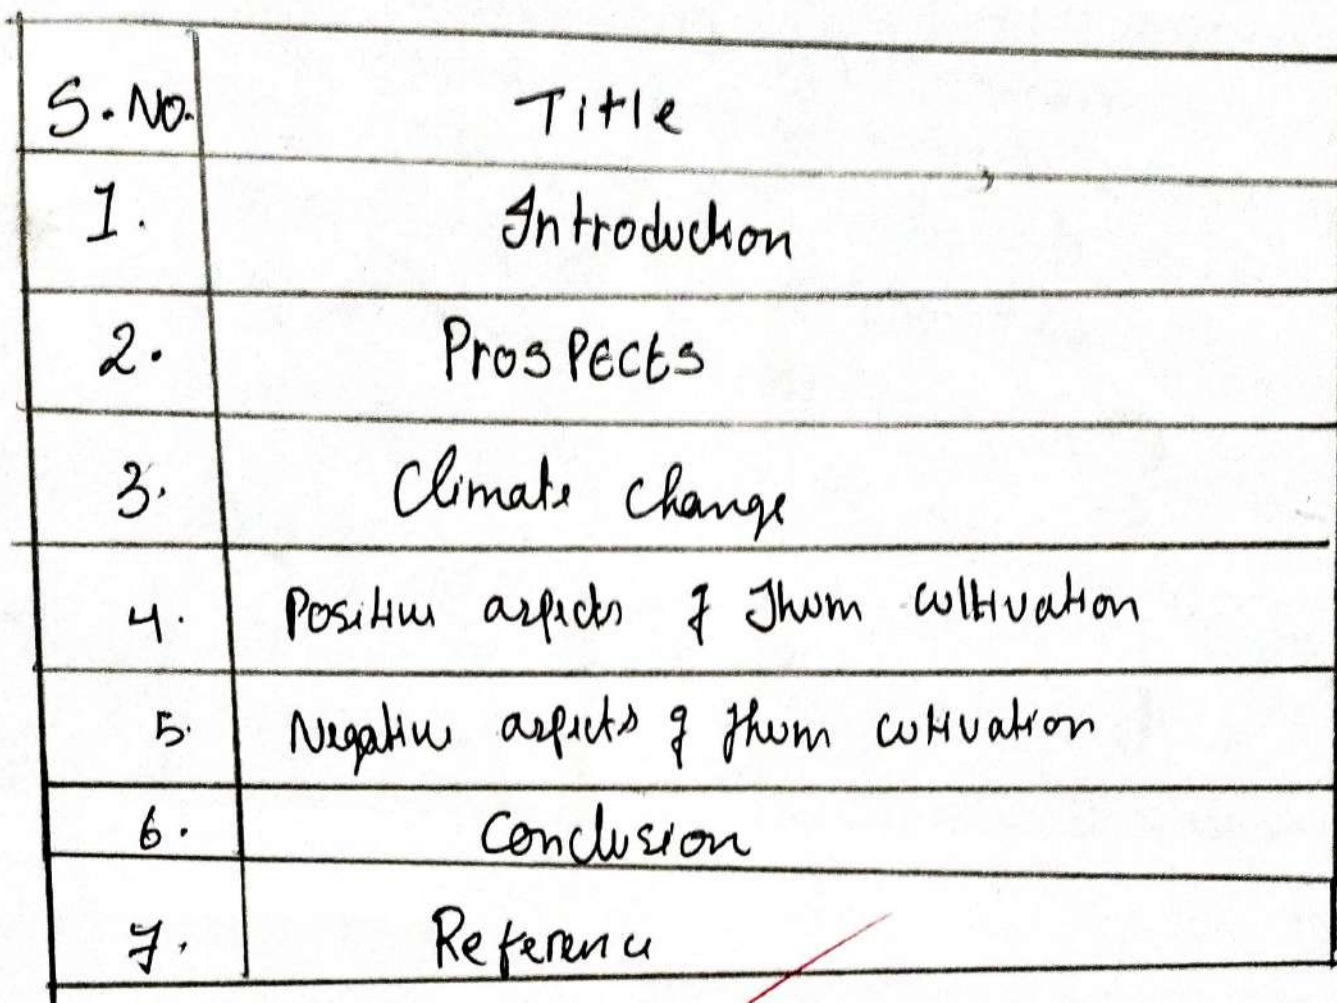 S.No. Title
1. Introduction
2. Prospects
3. Climate change
4. Positive aspects of Jhum cultivation
5. Negative aspects of Jhum cutivation
6. Conclusion
7. Reference